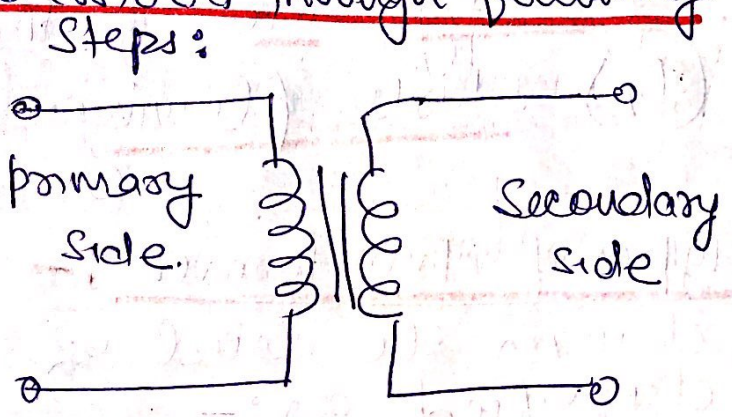 through
Steps:
primary
side.
Secondary
side